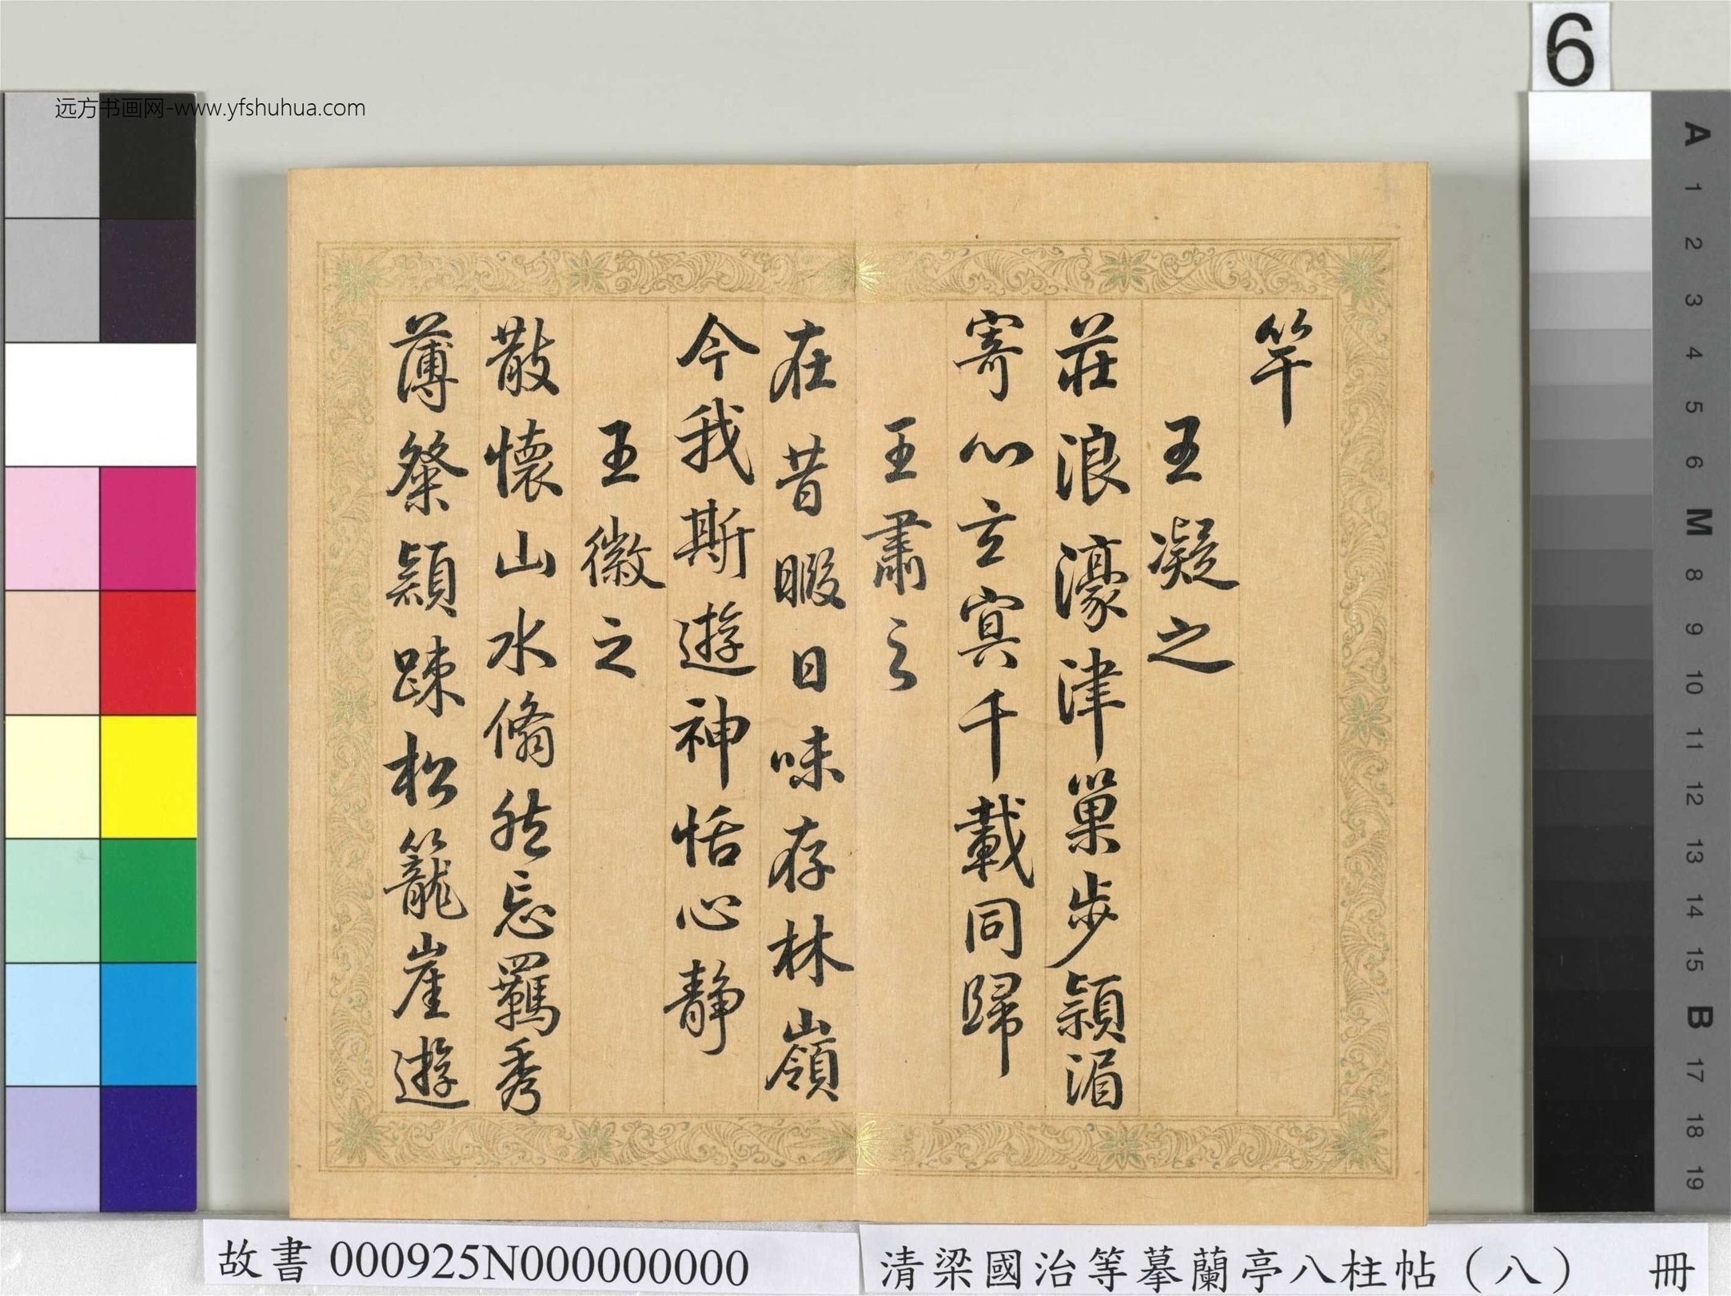 远方书画网-www.yfshuhua.com
6
竿
王凝之
莊浪濠津巢步潁湄
寄心玄冥千載同歸
王肅之
在昔暇日味存林嶺
今我斯遊神恬心静
王徽之
散懷山水翛然忘羈秀
薄粲穎踈松籠崖遊
A
1
2
3
4
5
6
M
8
9
10
11
12
13
14
15
B
17
18
19
故書000925N000000000
清梁國治等摹蘭亭八柱帖（八） 冊